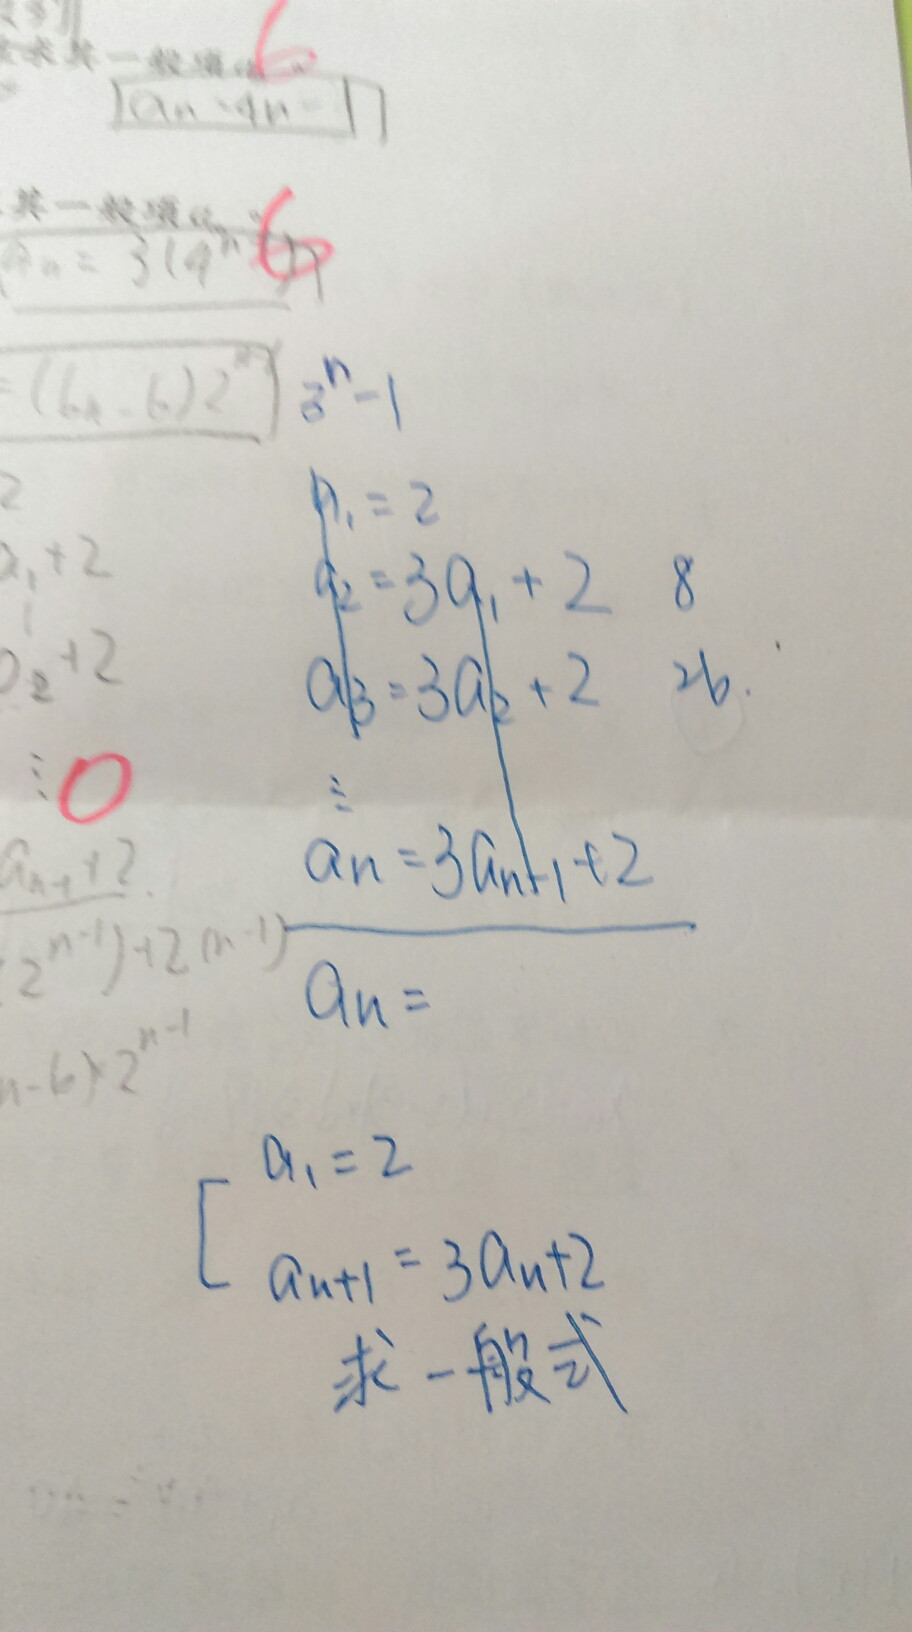 求其一般項
6
an = 4n - 1
其一般項an
6
an = 3(4^n
= (6n - 6)2^n
3^n - 1
2
a₁ + 2
₂ + 2
⋮ 0
an-1 + 2
2^n-1) + 2(n-1)
n - 6) × 2^n-1
a₁ = 2
a₂ = 3a₁ + 2 8
a₃ = 3a₂ + 2 26.
⋮
an = 3an+1 + 2
an =
a₁ = 2
an+1 = 3an + 2
求一般式